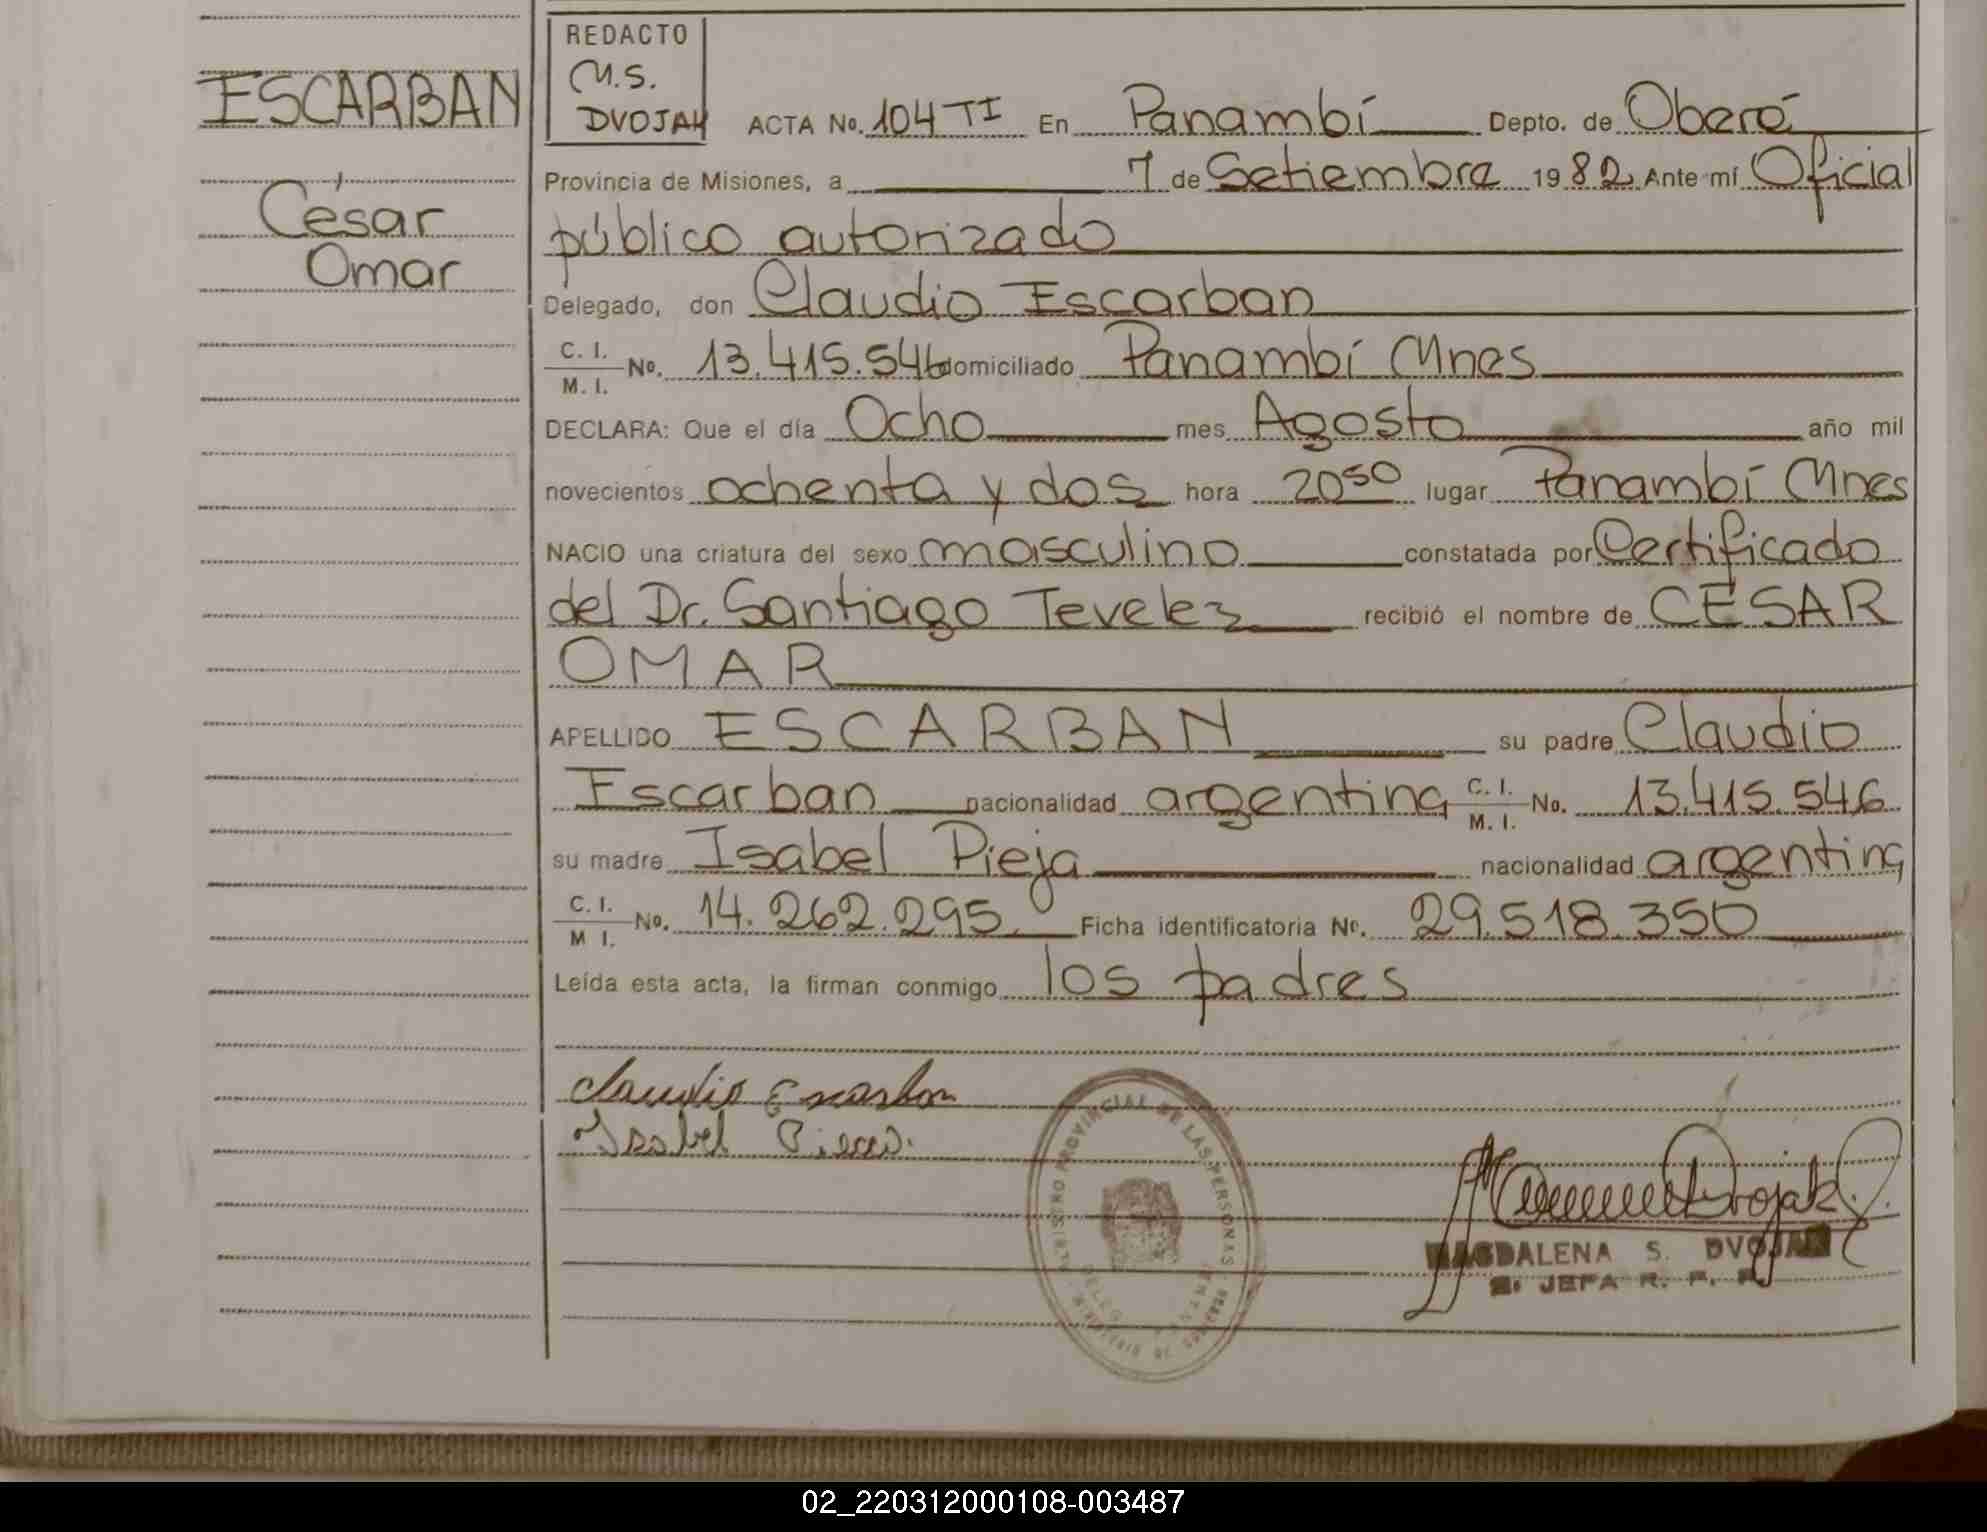 ESCARBAN
César
Omar
REDACTO
M.S.
DVOJAK
ACTA No. 104 TI En Panambí Depto. de Oberá
Provincia de Misiones, a 7 de Setiembre 1982 Ante mí Oficial
público autorizado
Delegado, don Claudio Escarban
C. I. / M. I. No. 13.415.546 domiciliado Panambí Mnes
DECLARA: Que el día Ocho mes Agosto año mil
novecientos ochenta y dos hora 20 50 lugar Panambí Mnes
NACIO una criatura del sexo masculino constatada por Certificado
del Dr. Santiago Tevelez recibió el nombre de CÉSAR
OMAR
APELLIDO ESCARBAN su padre Claudio
Escarban nacionalidad argentina C. I. / M. I. No. 13.415.546
su madre Isabel Pieja nacionalidad argentina
C. I. / M I. No. 14.262.295. Ficha identificatoria No. 29.518.350
Leída esta acta, la firman conmigo los padres
Claudio Escarban
Isabel
REGISTRO PROVINCIAL DE LAS PERSONAS
Dvojak
MAGDALENA S. DVOJAK
JEFA R. P. P.
02_220312000108-003487